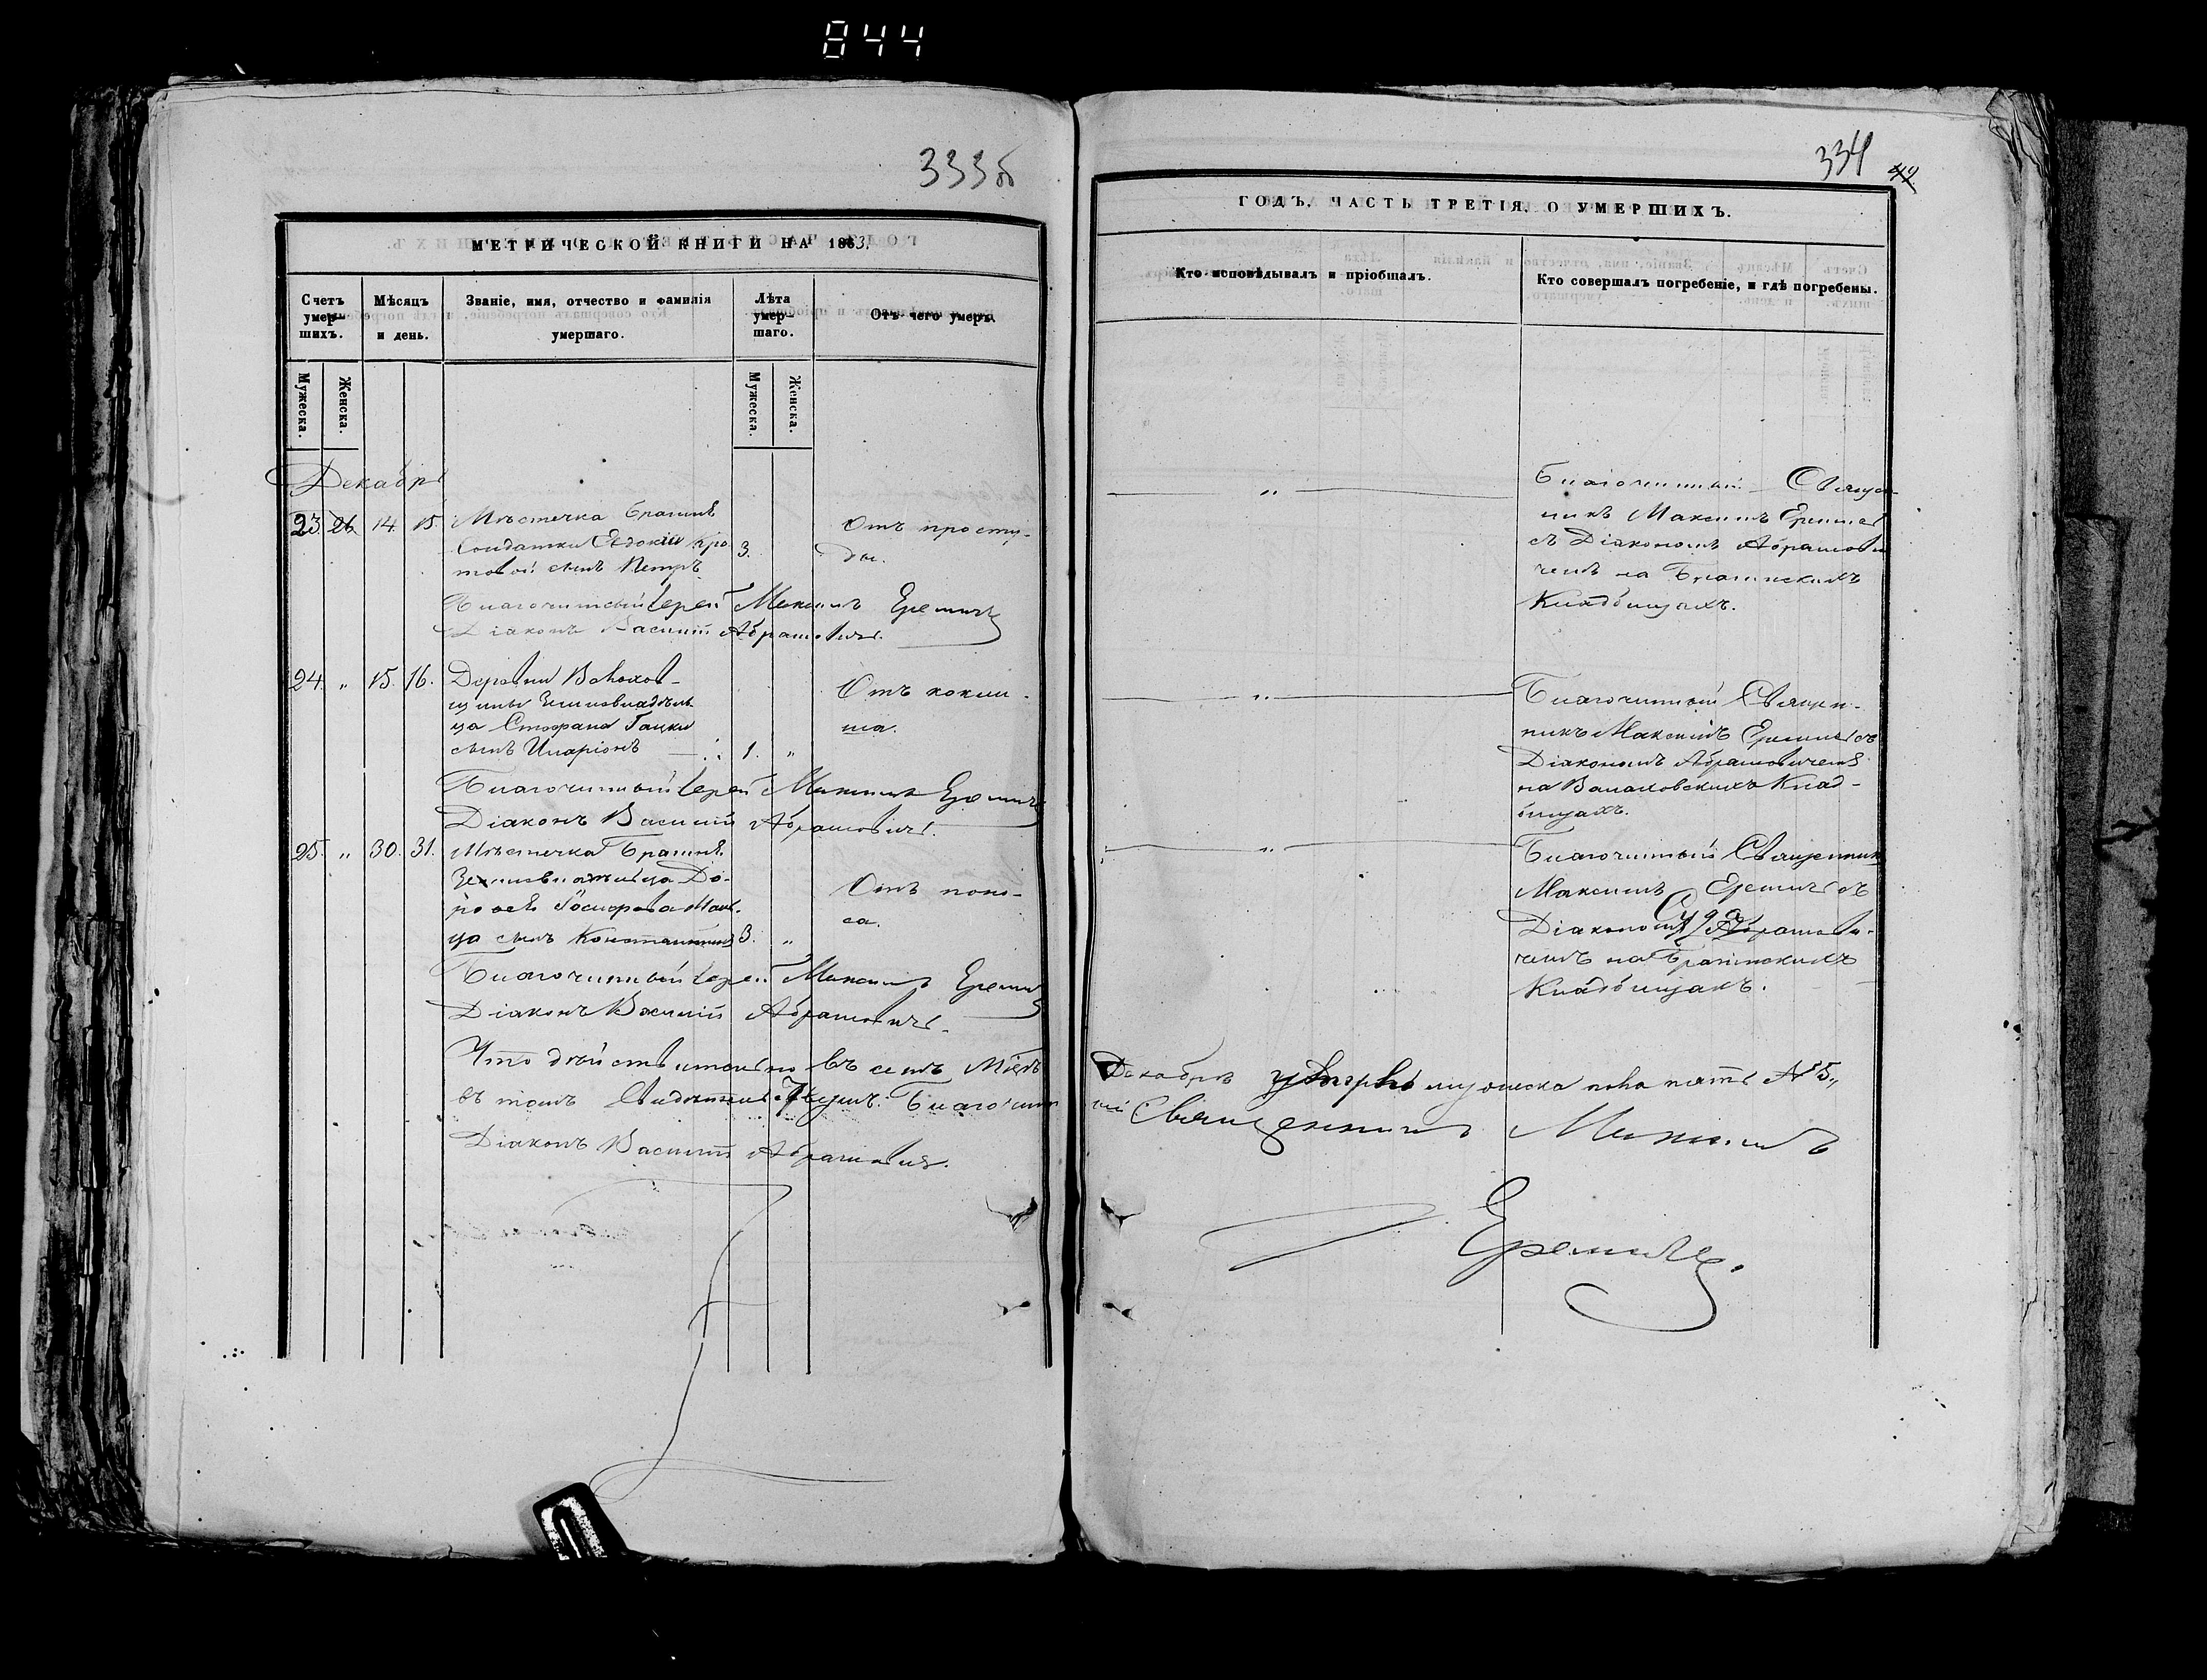 844
333 об
МЕТРИЧЕСКОЙ КНИГИ НА 1863.
Счетъ умер-шихъ.
Мѣсяцъ и день.
Званіе, имя, отчество и фамилія умершаго.
Лѣта умер-шаго.
Отъ чего умеръ.
Мужеска.
Женска.
Мужеска.
Женска.
Декабрь
23 26 14 15. Мѣстечка Брагинѣ
Солдатки Евдокіи
сынъ Петръ 3.
Отъ просту-
ды.
Благочинный Іерей Максимъ Еремичъ
Діаконъ Василій Абрамовичъ.
24. " 15. 16. Деревни
щины Землевладѣль-
ца Стефана Гацки
сынъ Иларіонъ 1. "
Отъ коклю-
ша.
Благочинный Іерей Максимъ Еремичъ
Діаконъ Василій Абрамовичъ.
25. " 30. 31. Мѣстечка Брагинѣ
До-
сынъ Константинъ 3. "
Отъ поно-
са.
Благочинный Іерей Максимъ Еремичъ
Діаконъ Василій Абрамовичъ.
Что дѣйствительно въ семъ
въ томъ Благочин
Діаконъ Василій Абрамовичъ.
334
42
ГОДЪ, ЧАСТЬ ТРЕТІЯ, О УМЕРШИХЪ.
Кто исповѣдывалъ и пріобщалъ.
Кто совершалъ погребеніе, и гдѣ погребены.
"
Благочинный Священ-
никъ Максимъ Еремичъ
съ Діакономъ Абрамови
чемъ на Брагинскихъ
Кладбищахъ.
"
Благочинный Священ-
никъ Максимъ Еремичъ съ
Діакономъ Абрамовичемъ
на Валаховскихъ Клад-
бищахъ.
"
Благочинный Священникъ
Максимъ Еремичъ съ
Діакономъ Абрамови-
чемъ на Брагинскихъ
Кладбищахъ.
Декабрѣ умерло мужеска пола пять № 5.,
ный Священникъ Максимъ
Еремичъ.